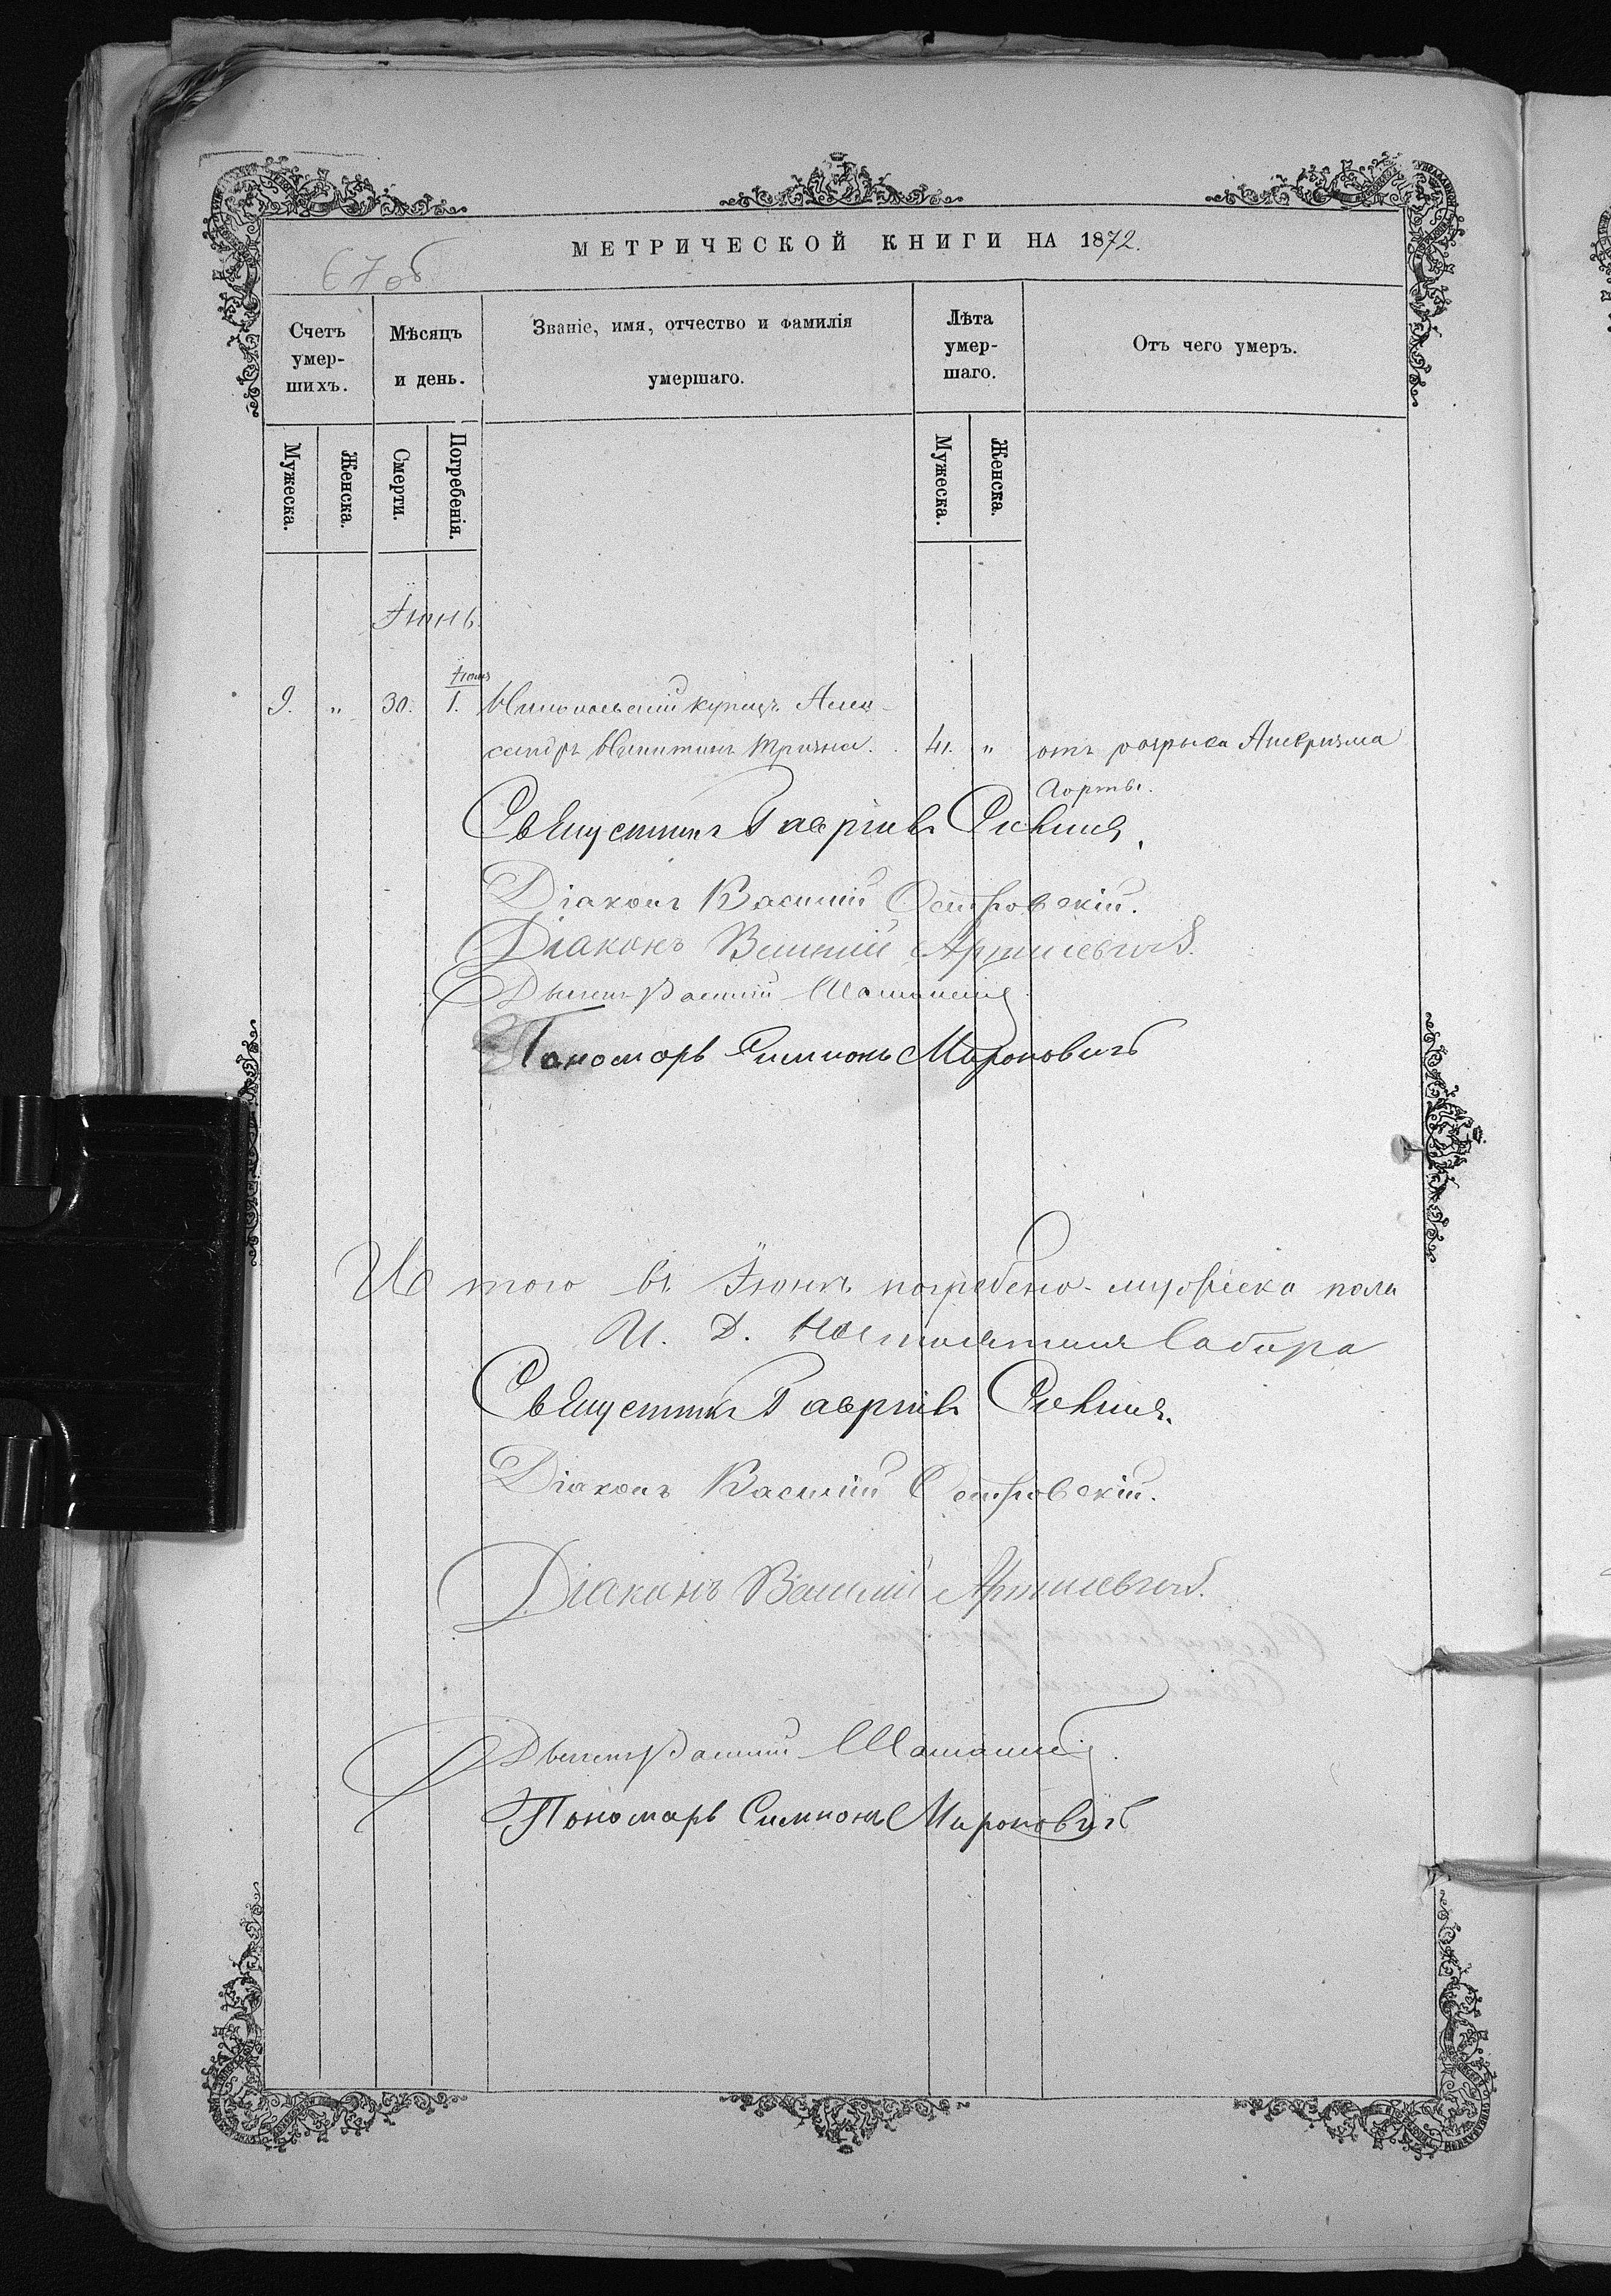 67 об
МЕТРИЧЕСКОЙ КНИГИ НА 1872.
Счетъ умер-шихъ.
Мѣсяцъ и день.
Званіе, имя, отчество и фамилія умершаго.
Лѣта умер-шаго.
Отъ чего умеръ.
Мужеска.
Женска.
Смерти.
Погребенія.
Мужеска.
Женска.
Іюнь
9. " 30. 1. купецъ Алек-
сандръ Никитинъ 41. " отъ разрыва Аневризма
Аорты.
Священникъ Гавріилъ
Діаконъ Василій Островскій.
Діаконъ Василій
Василій
Пономарь Симіонъ Мироновичъ
И того въ Іюнѣ погребено мужеска пола
И. Д. Настоятеля Собора
Священникъ Гавріилъ
Діаконъ Василій Островскій.
Діаконъ Василій
Василій
Пономарь Симіонъ Мироновичъ